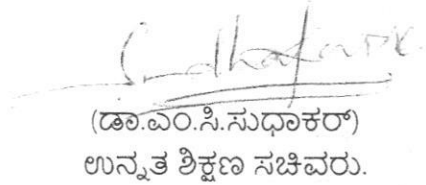 (ಡಾ.ಎಂ.ಸಿ.ಸುಧಾಕರ್)
ಉನ್ನತ ಶಿಕ್ಷಣ ಸಚಿವರು.